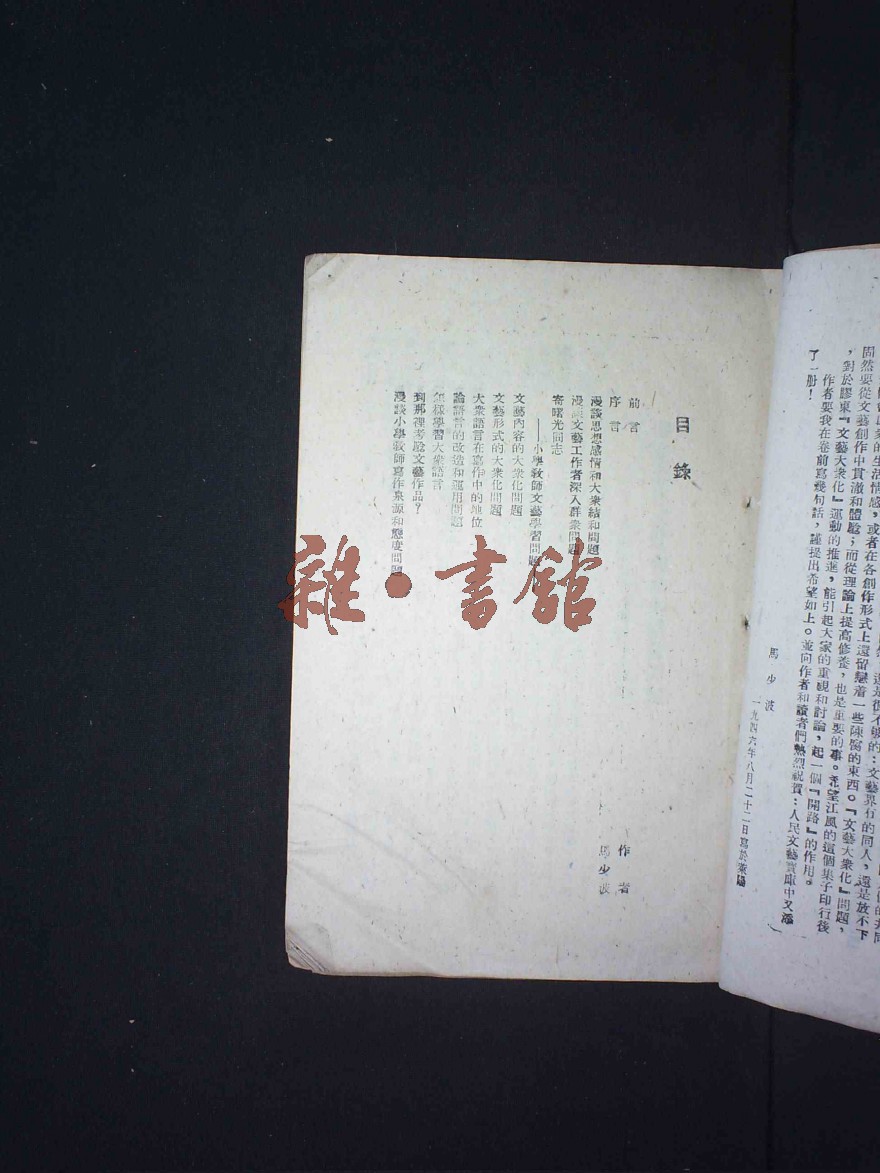 固然要從文藝創作中貫澈和體驗；而從理論上提高修養，也是重要的事。希望江風的這個集子印行後
，對於膠東『文藝大衆化』運動的推進，能引起大家的重視和討論，起一個『開路』的作用。
作者要我在卷前寫幾句話，謹提出希望如上。並向作者和讀者們熱烈祝賀：人民文藝寶庫中又添
了一册！
馬少波
一九四六年八月二十二日寫於萊陽
目錄
前言 作者
序言 馬少波
漫談思想感情和大衆結和問題
漫談文藝工作者深入群衆問題
寄曙光同志
——小學教師文藝學習問題
文藝內容的大衆化問題
文藝形式的大衆化問題
大衆語言在寫作中的地位
論語言的改造和運用問題
怎樣學習大衆語言
到那裡考驗文藝作品？
漫談小學教師寫作泉源和態度問題
雜·書館